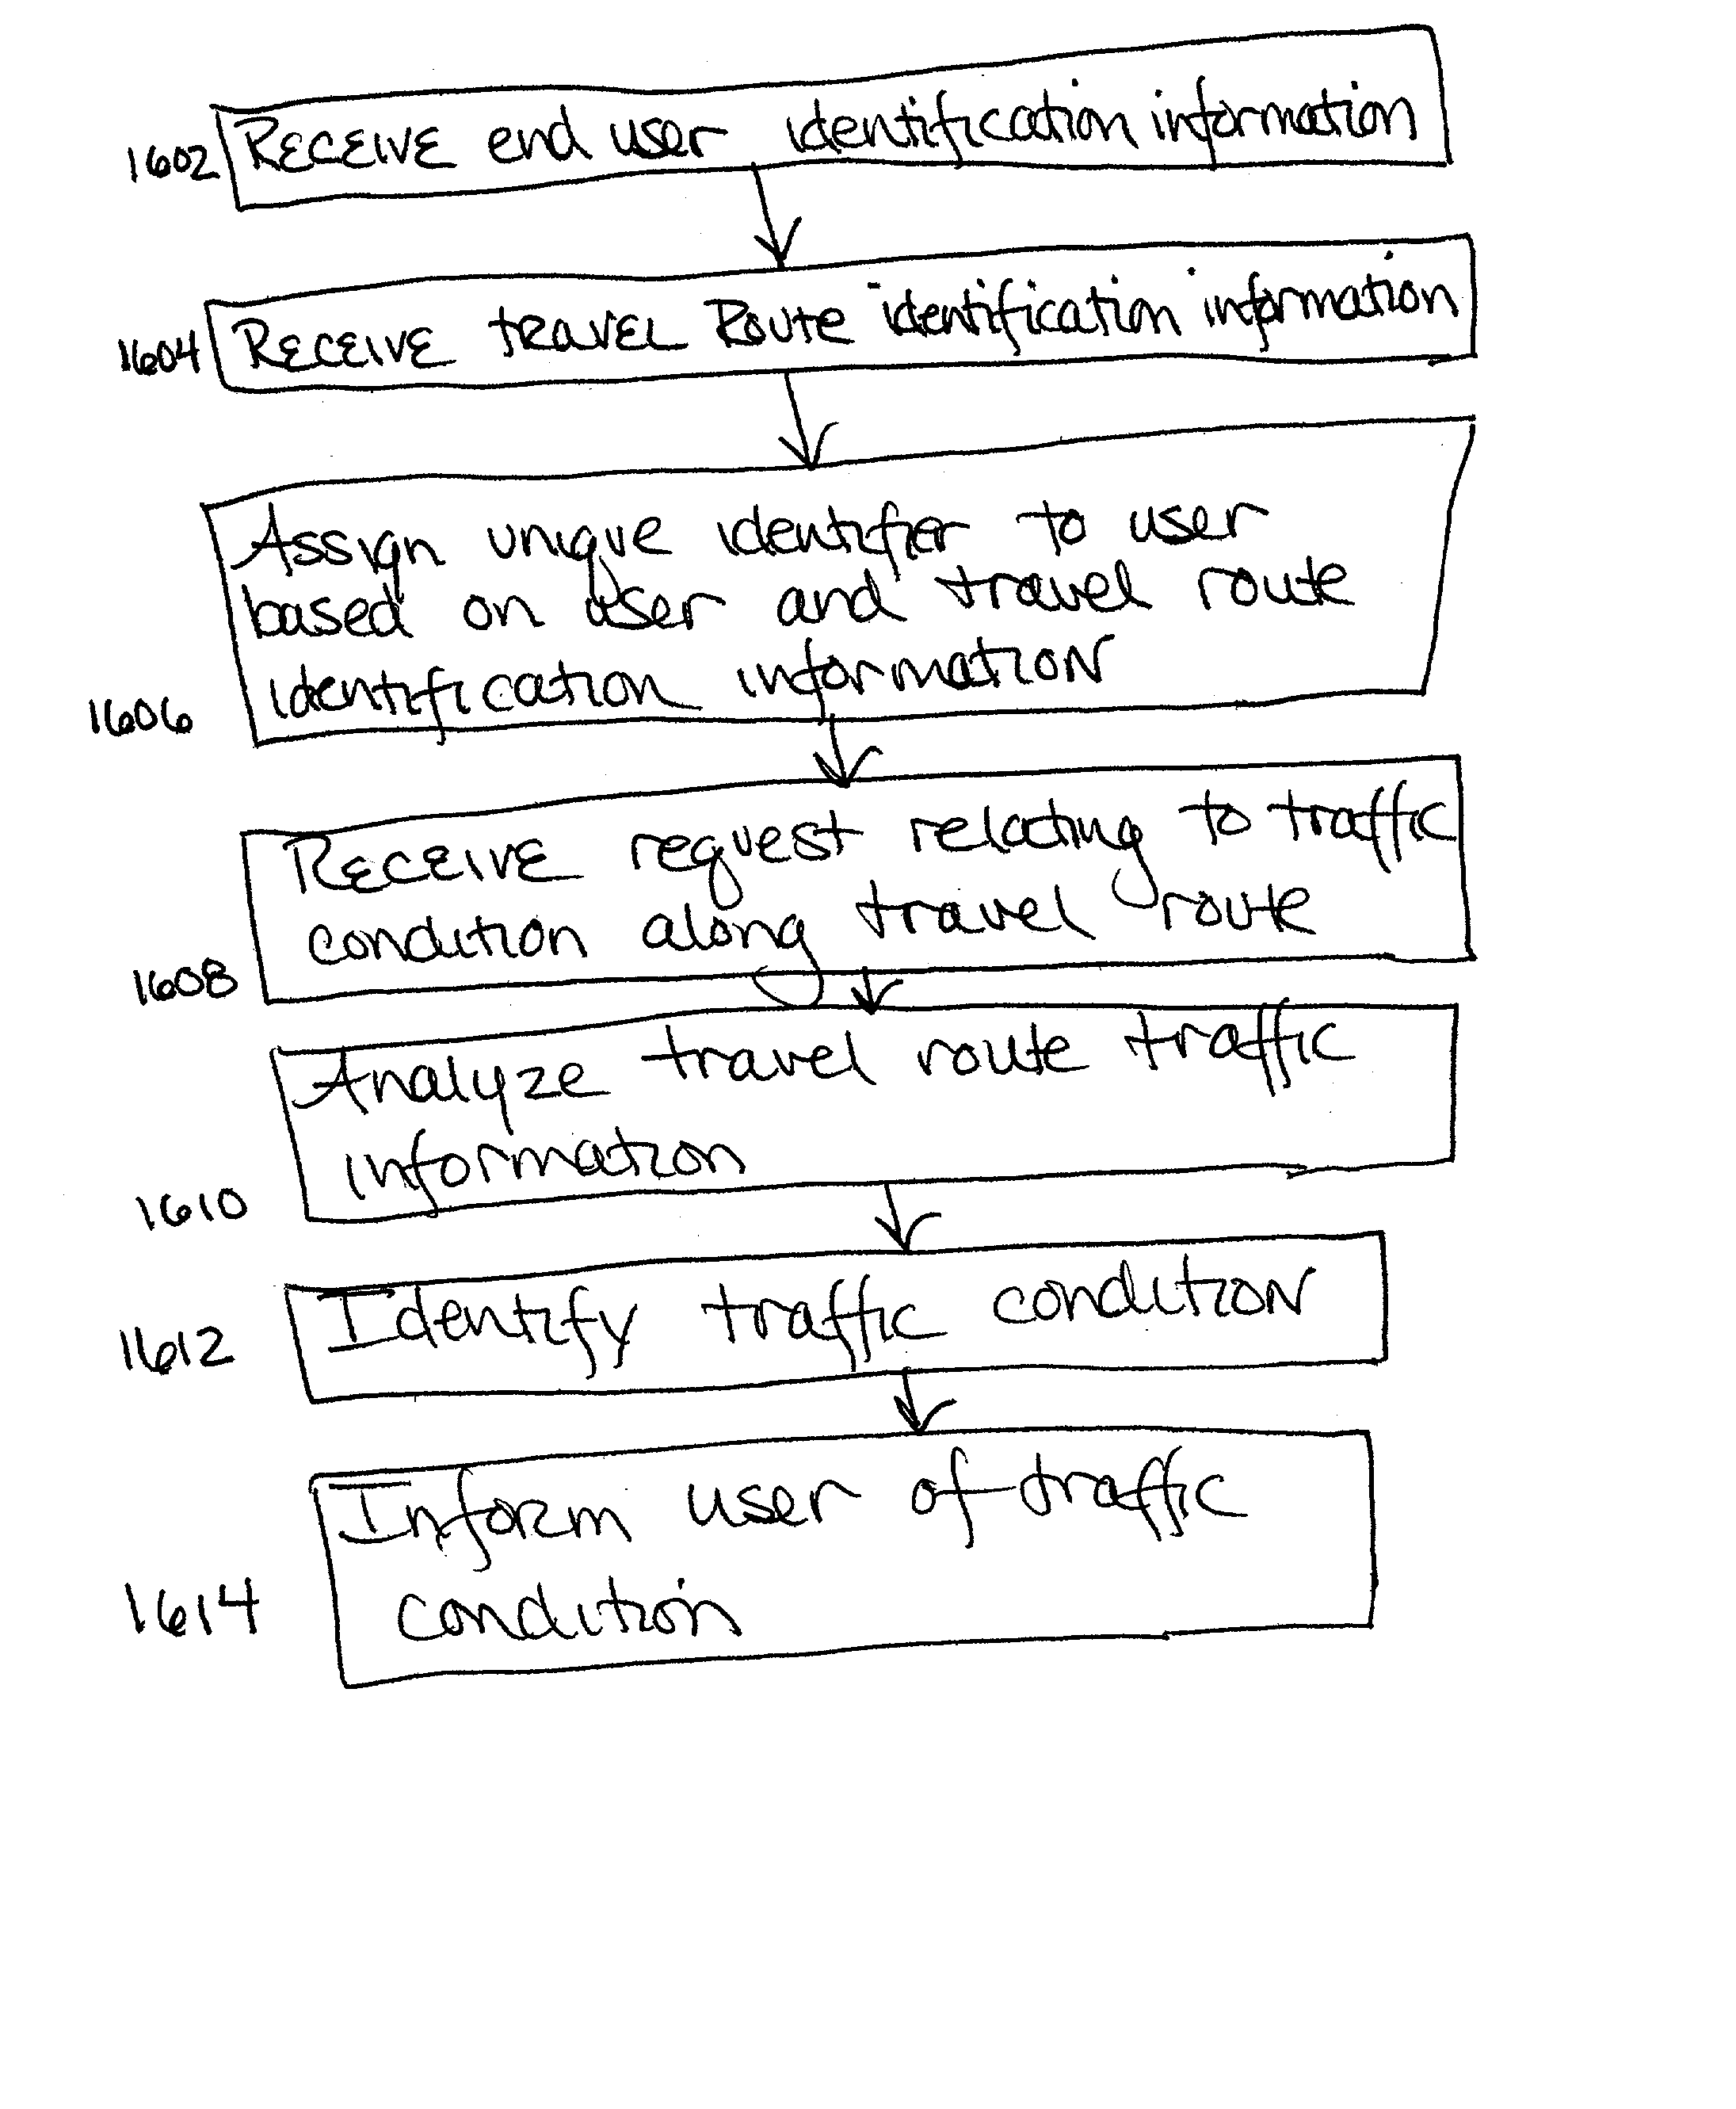 1602 RECEIVE end user identification information
1604 RECEIVE TRAVEL ROUTE identification information
Assign unique identifier to user
based on user and travel route
1606 identification information
RECEIVE request relating to traffic
condition along travel route
1608
Analyze travel route traffic
information
1610
Identify traffic condition
1612
Inform user of traffic
condition
1614